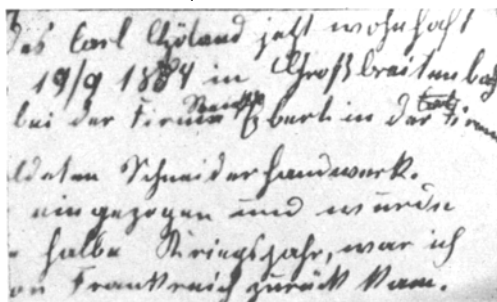 das Carl Götand jetzt wohnhaft
19/9 1884 in Großbreitenbach
bei der Firma Ebert in der Firma
ldeten Schneiderhandwerk.
eingezogen und wurde
halbe Kriegsjahr, war ich
on Frankreich zurück kam.